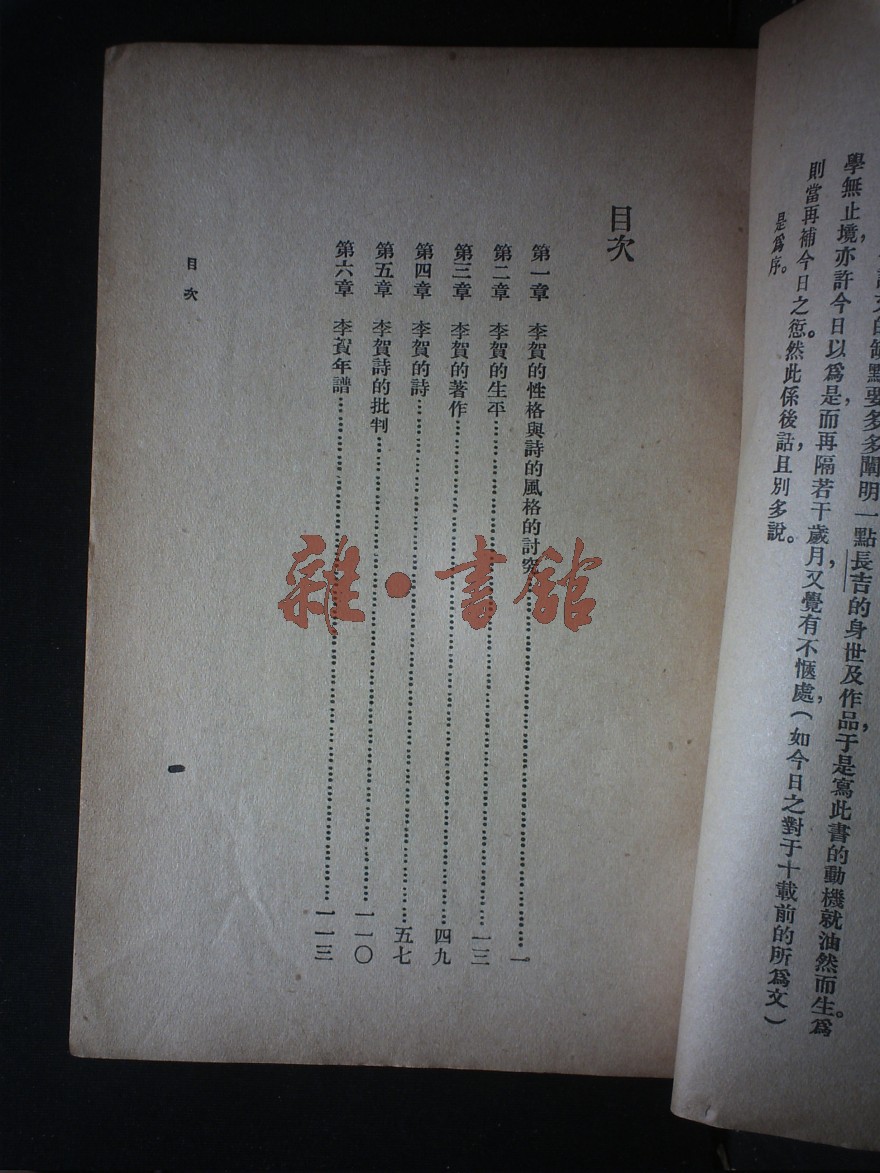 的缺點要多多闡明一點長吉的身世及作品,于是寫此書的動機就油然而生。爲
學無止境,亦許今日以爲是,而再隔若干歲月,又覺有不愜處,(如今日之對于十載前的所爲文)
則當再補今日之愆。然此係後話,且別多說。
是爲序。
目次
第一章 李賀的性格與詩的風格的討究……一
第二章 李賀的生平……一三
第三章 李賀的著作……四九
第四章 李賀的詩……五七
第五章 李賀詩的批判……一一〇
第六章 李賀年譜……一一三
目次
雜·書館